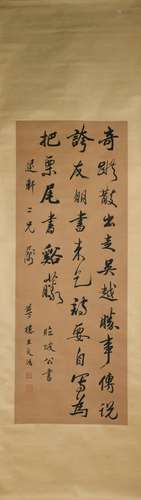 奇蹤散出走吳越勝事傳說
誇友朋書來乞詩要自寫為
把栗尾書谿藤 臨坡公書
述軒二兄屬
夢樓王文治